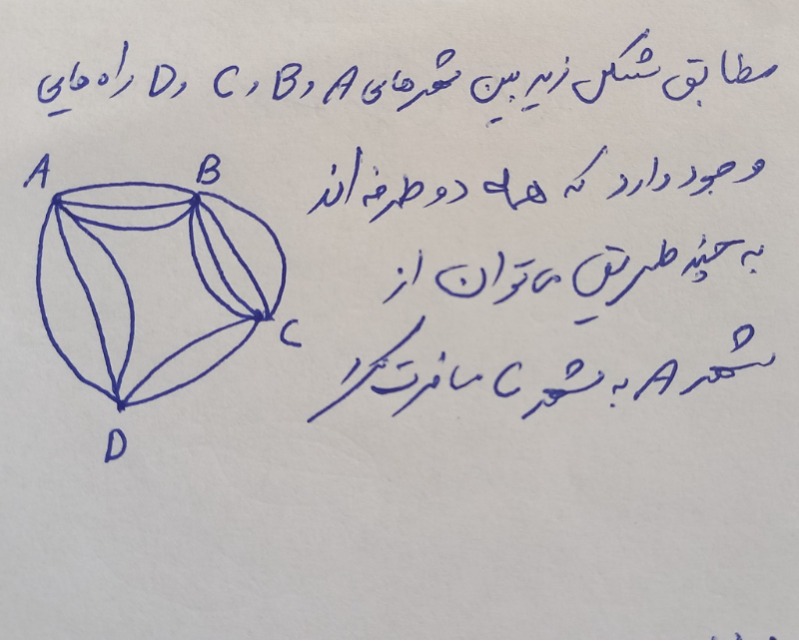 مطابق شکل زیر بین شهرهای A و B و C و D راه هایی
وجود دارد که همه دو طرفه اند
به چند طریق می توان از
شهر A به شهر C مسافرت کرد
A
B
C
D